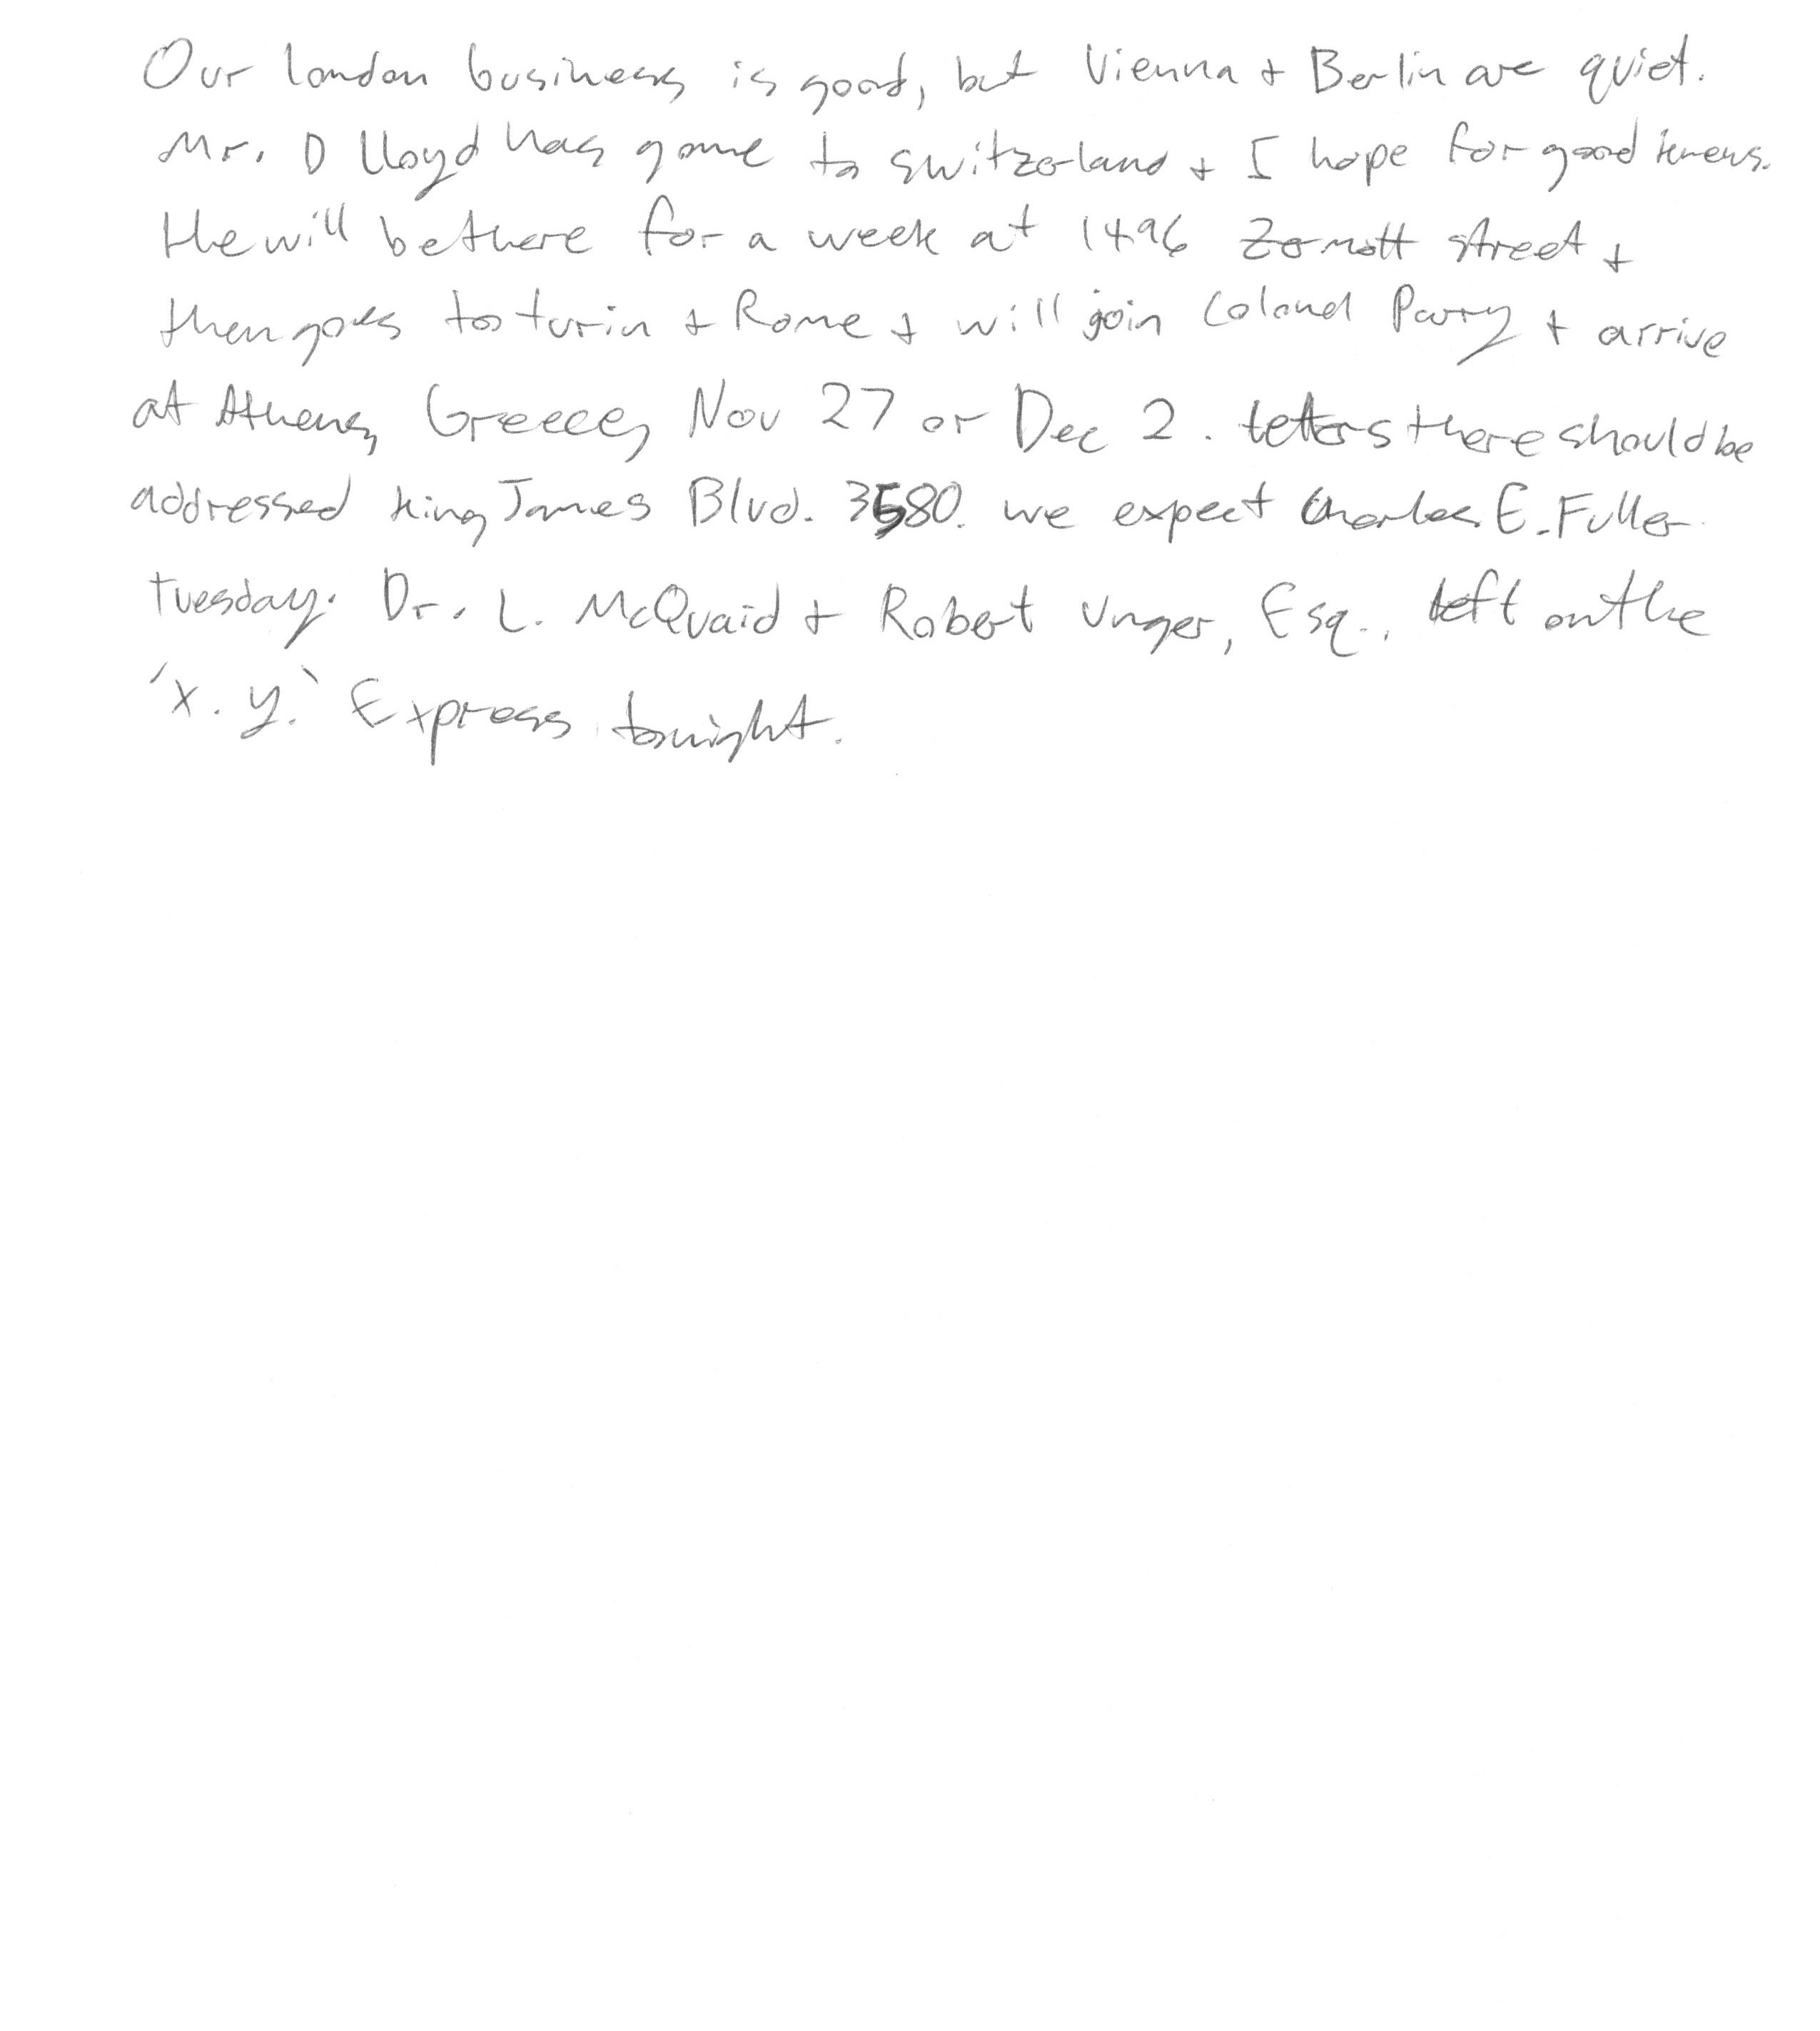 Our london business is good, but Vienna + Berlin are quiet.
Mr. D Lloyd has gone to switzerland + I hope for good news.
He will be there for a week at 1496 Zermott street +
then goes to turin + Rome + will join Colonel Parry + arrive
at Athens, Greece, Nov 27 or Dec 2. letters there should be
addressed King James Blvd. 3580. we expect Charles E. Fuller
tuesday. Dr. L. McQuaid + Robert Unger, Esq., left on the
'X. Y.' Express tonight.